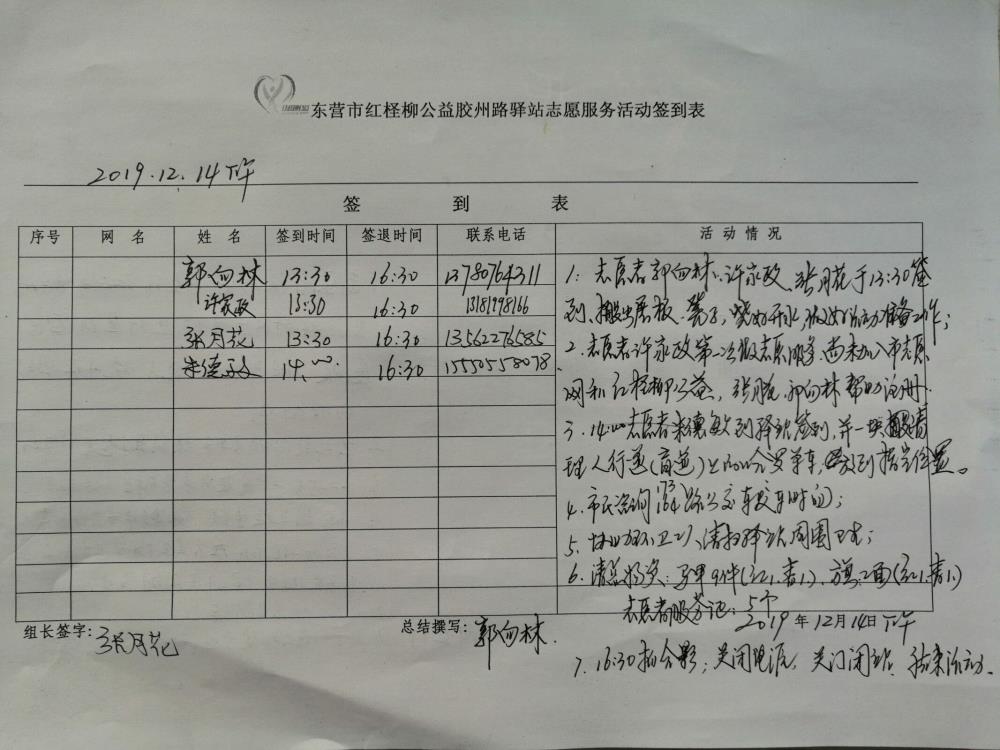 东营市红柽柳公益胶州路驿站志愿服务活动签到表
2019.12.14下午
签 到 表
序号 网名 姓名 签到时间 签退时间 联系电话 活动情况
郭向林 13:30 16:30 13780764311
许家政 13:30 16:30 13181998166
张月花 13:30 16:30 13562276585
朱德敏 14:00 16:30 15550558078
1: 志愿者郭向林、许家政、张月花于13:30签
到、搬出展板、凳子,烧好开水,做好活动准备工作;
2. 志愿者许家政第一次做志愿服务,尚未加入市志愿
网和红柽柳公益,张月花,郭向林帮助注册.
3. 14:00志愿者朱德敏到驿站签到,并一块搬清
理人行道(盲道)上的共享单车,到指定位置。
4. 市民咨询173 164路公交车发车时间;
5. 协助环卫工人清扫驿站周围卫生;
6. 清点物资:马甲9件(红1.青1).旗2面(红1.青1)
志愿者服务证:5个
组长签字:张月花
总结撰写:郭向林.
2019年12月14日下午
7. 16:30拍合影;关闭电源,关门闭站,结束活动.